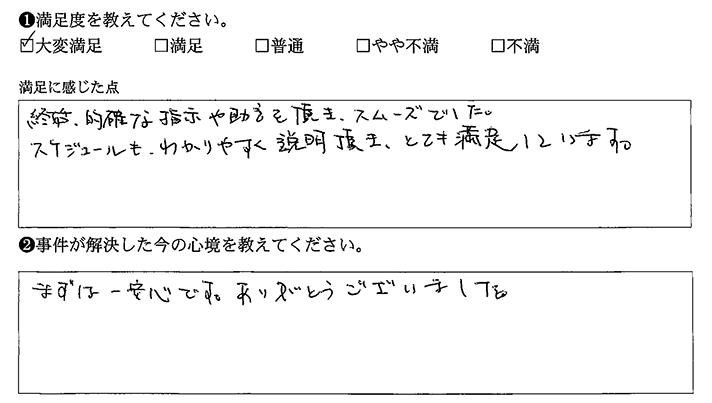 ❶満足度を教えてください。
☑大変満足 □満足 □普通 □やや不満 □不満
満足に感じた点
終始、的確な指示や助言を頂き、スムーズでした。
スケジュールも、わかりやすく説明頂き、とても満足しています。
❷事件が解決した今の心境を教えてください。
まずは一安心です。ありがとうございました。